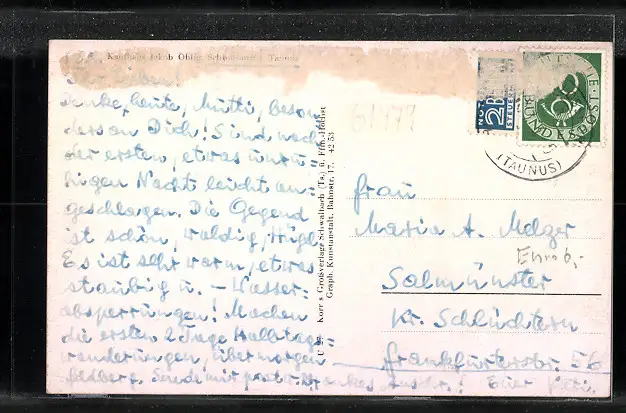 Kaufhaus Jakob Ohlig, Schwalbach i. Taunus
Ihr Lieben!
Denke heute, Mutti, beson=
ders an Dich! Sind nach
der ersten, etwas unru=
higen Nacht leicht an=
geschlagen. Die Gegend
ist schön, waldig, Hügel.
Es ist sehr warm, etwas
staubig u. – Wasser=
absperrungen! Machen
die ersten 2 Tage Halbtags=
wanderungen, übermorgen
Feldberg.
Korr's Großverlag Schwalbach (Ts.) u. Ffm.-Höchst
Graph. Kunstanstalt, Bahnstr. 17. 42 53
61479
NOT
2 B
STEUER
DEUTSCHE BUNDESPOST
(TAUNUS)
Frau
Maria A. Melzer
Euro 6,-
Salmünster
Kr. Schlüchtern
Frankfurterstr. 56